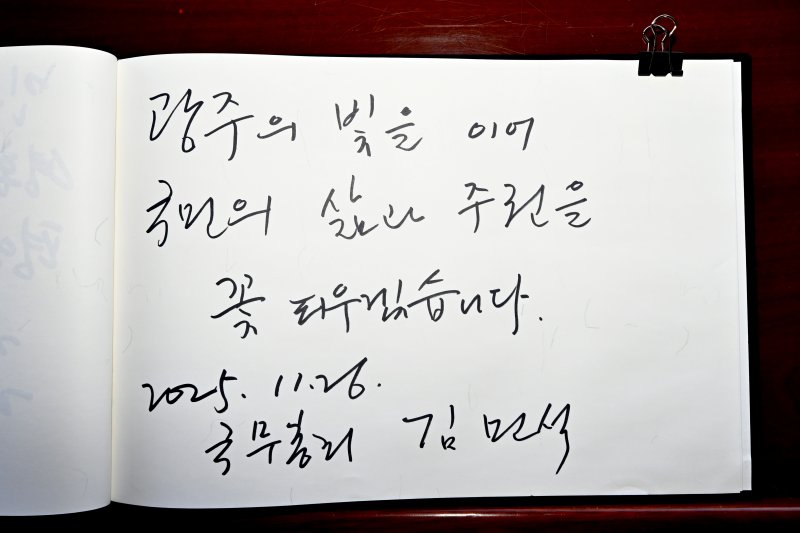 광주의 빛을 이어
국민의 삶과 주권을
꽃 피우겠습니다.
2025. 11. 26.
국무총리 김민석